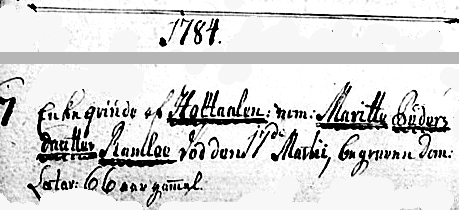 1784.
7 Enkeqvinde af Holtaalen: nom: Maritte Peders
daatter Ramloe død den 17de Martii, begraven dom:
Lætar: 66 aar gam̄el.